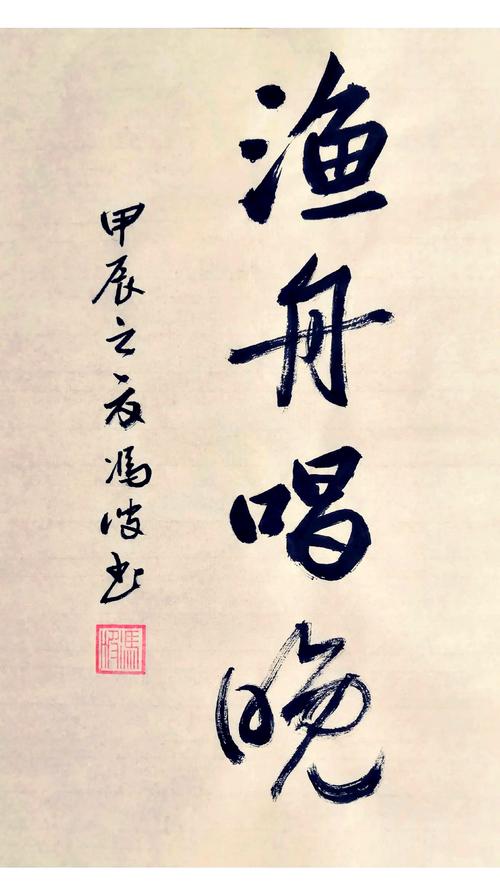 渔舟唱晚
甲辰立夏冯波书